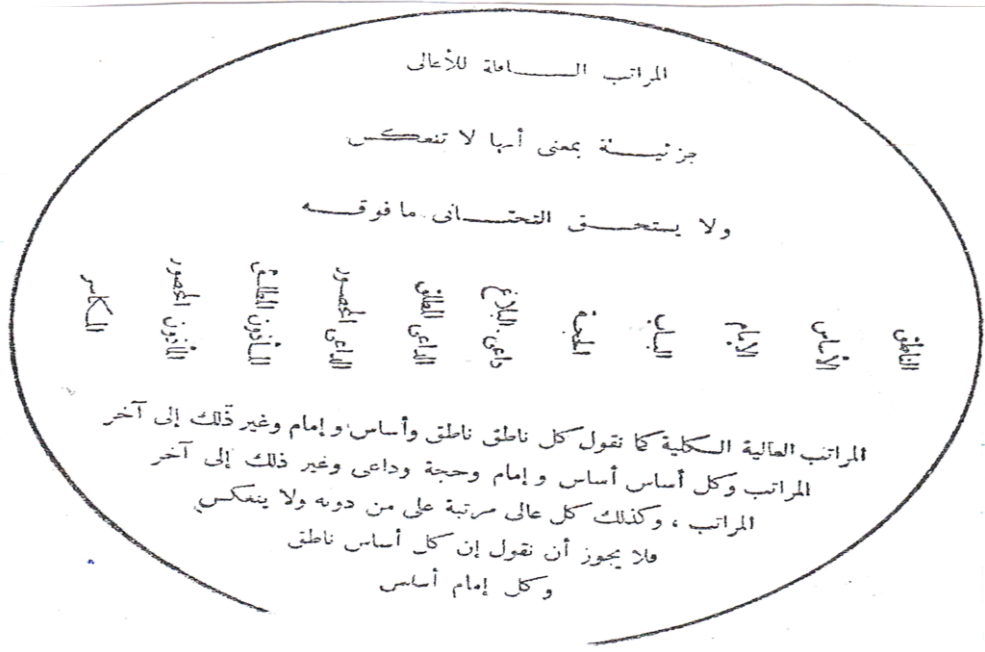 المراتب الســــافلة للأعالى
جزئيـــــة بمعنى أنها لا تنعكـــس
ولا يستحـــق التحتـــانى ما فوقـــه
الناطق
الأساس
الامام
الباب
الحجة
داعى البلاغ
الداعى المطلق
الداعى المحصور
المأذون المطلق
المأذون المحصور
المكاسر
المراتب العالية الكلية كما نقول كل ناطق ناطق وأساس وإمام وغير ذلك إلى آخر
المراتب وكل أساس أساس وإمام وحجة وداعى وغير ذلك إلى آخر
المراتب ، وكذلك كل عالى مرتبة على من دونه ولا ينعكس
فلا يجوز أن نقول إن كل أساس ناطق
وكل إمام أساس